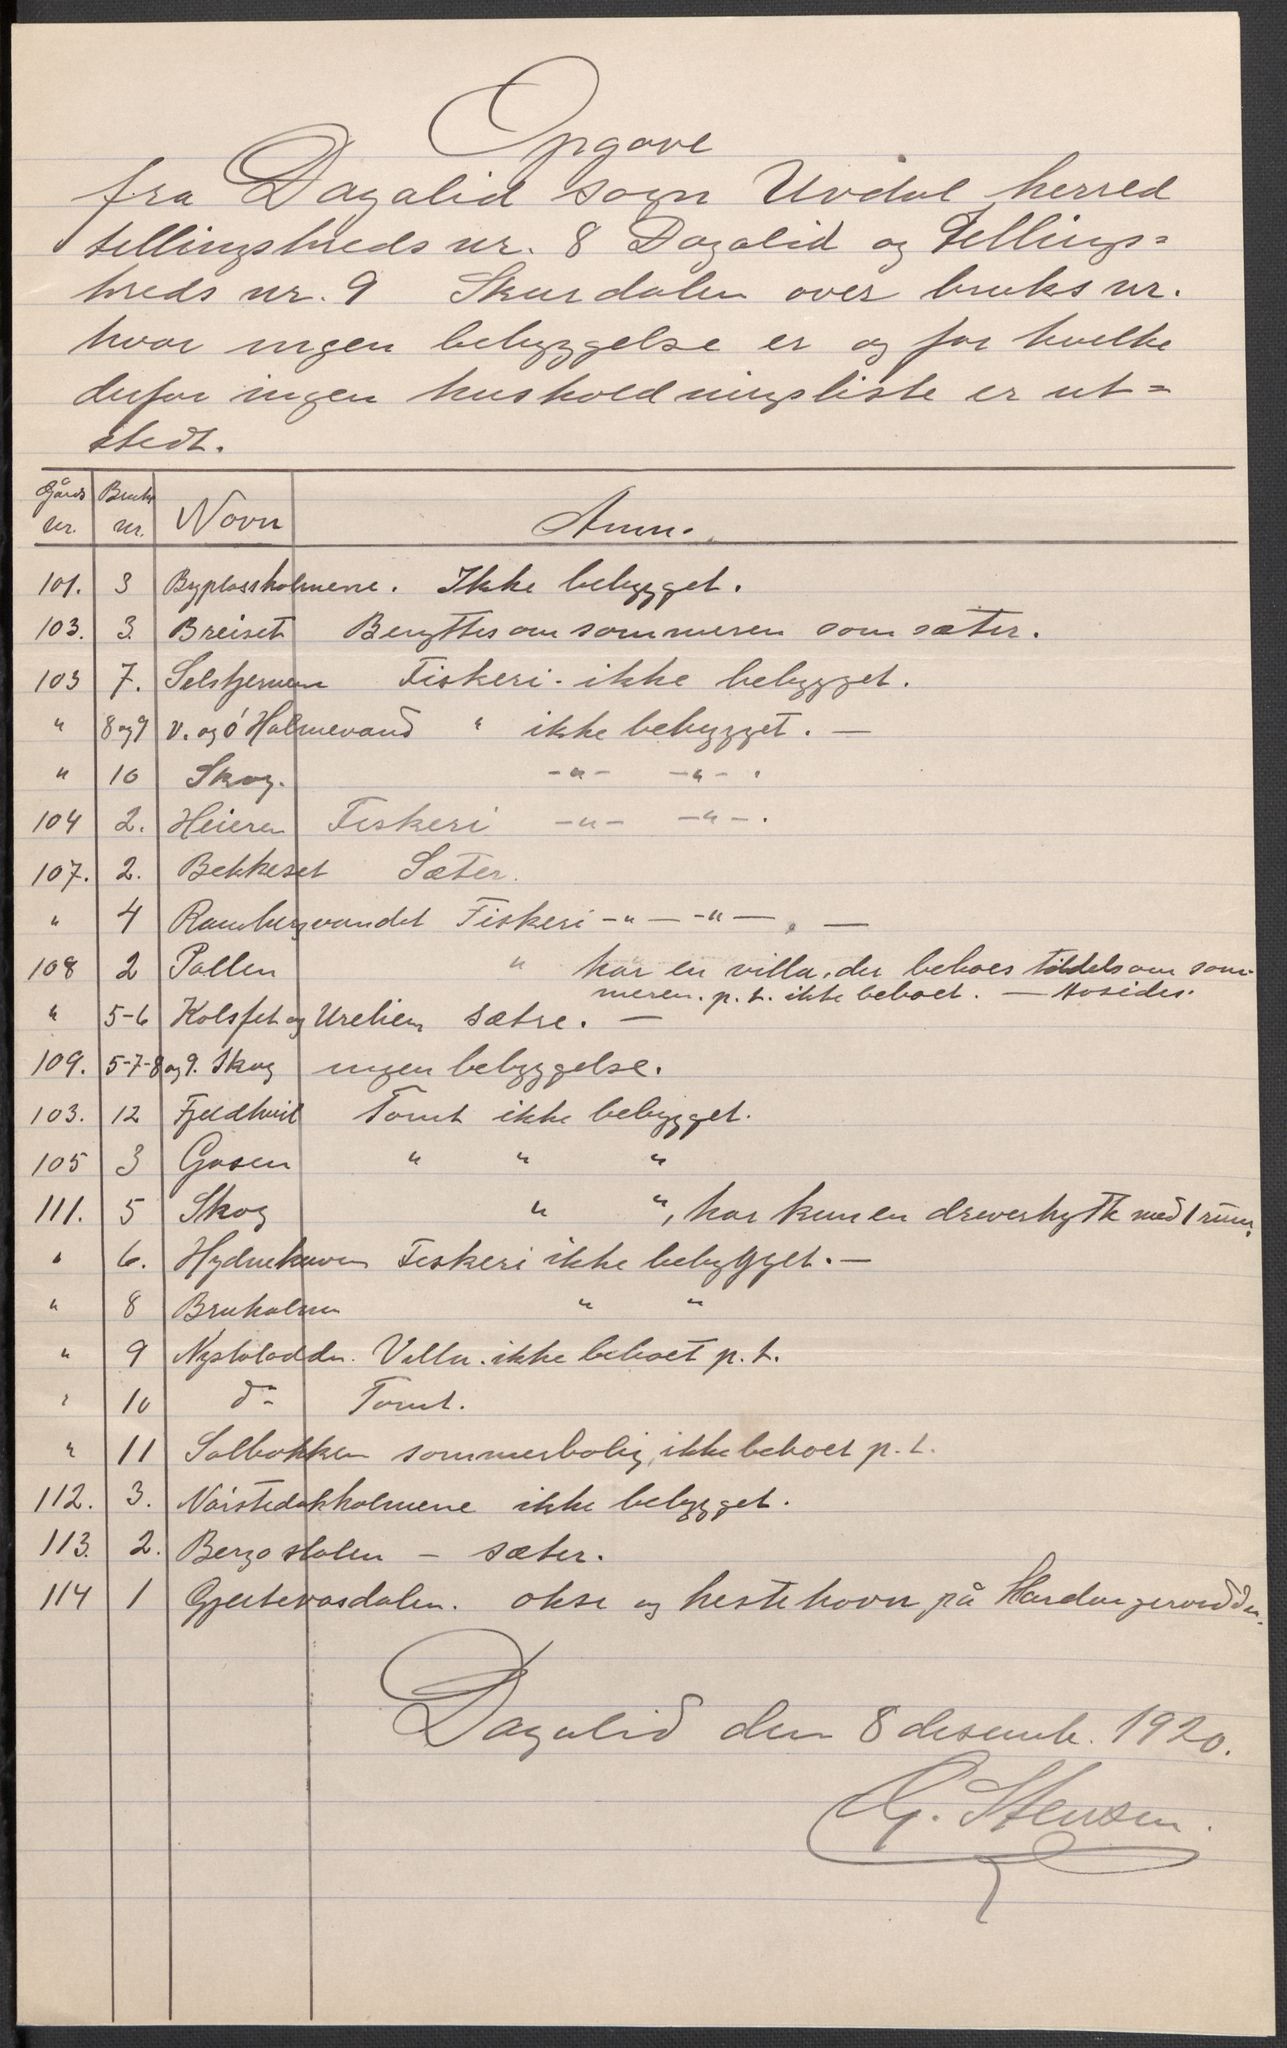 Opgave
fra Dagalid sogn Uvdal herred
tellingskreds nr. 8 Dagalid og Tellings=
kreds nr. 9 Skurdalen over bruks nr.
hvor ingen bebyggelse er og for hvilke
derfor ingen husholdningsliste er ut=
stedt.
Gårds nr. Bruks nr. Navn Anm.
101. 3 Byplassholmene. Ikke bebygget.
103. 3. Breiset Benyttes om sommeren som sæter.
103 7. Selstjernene Fiskeri - ikke bebygget.
" 8 og 9 V. og ö Halnevand " ikke bebygget. —
" 10 Skog. -"- -"- .
104 2. Heieren Fiskeri -"- -"- .
107. 2. Bekkeset Sæter.
" 4 Rambergvandet Fiskeri -"- -"- , —
108 2 Pollen " har en villa, der beboes tildels om som-
meren. p. t. ikke beboet. —
" 5-6 Kolsset og Urelien sætre. —
109. 5-7-8 og 9. Skog ingen bebyggelse.
103. 12 Fjeldhvil Tomt ikke bebygget.
105 3 Gosen " " "
111. 5 Skog " ", har kun en dreverhytte med 1 rum.
" 6. Fiskeri ikke bebygget. —
" 8 Bruholmen " "
" 9 Villa. ikke beboet p. t.
" 10 do Tomt.
" 11 Solbakken sommerbolig, ikke beboet p. t.
112. 3. ikke bebygget.
113. 2. Bergostølen - sæter.
114 1 Gjeitevasdalen. okse og hestehavn på Hardangervidden.
Dagalid den 8 desemb. 1920.
G. Stensen.